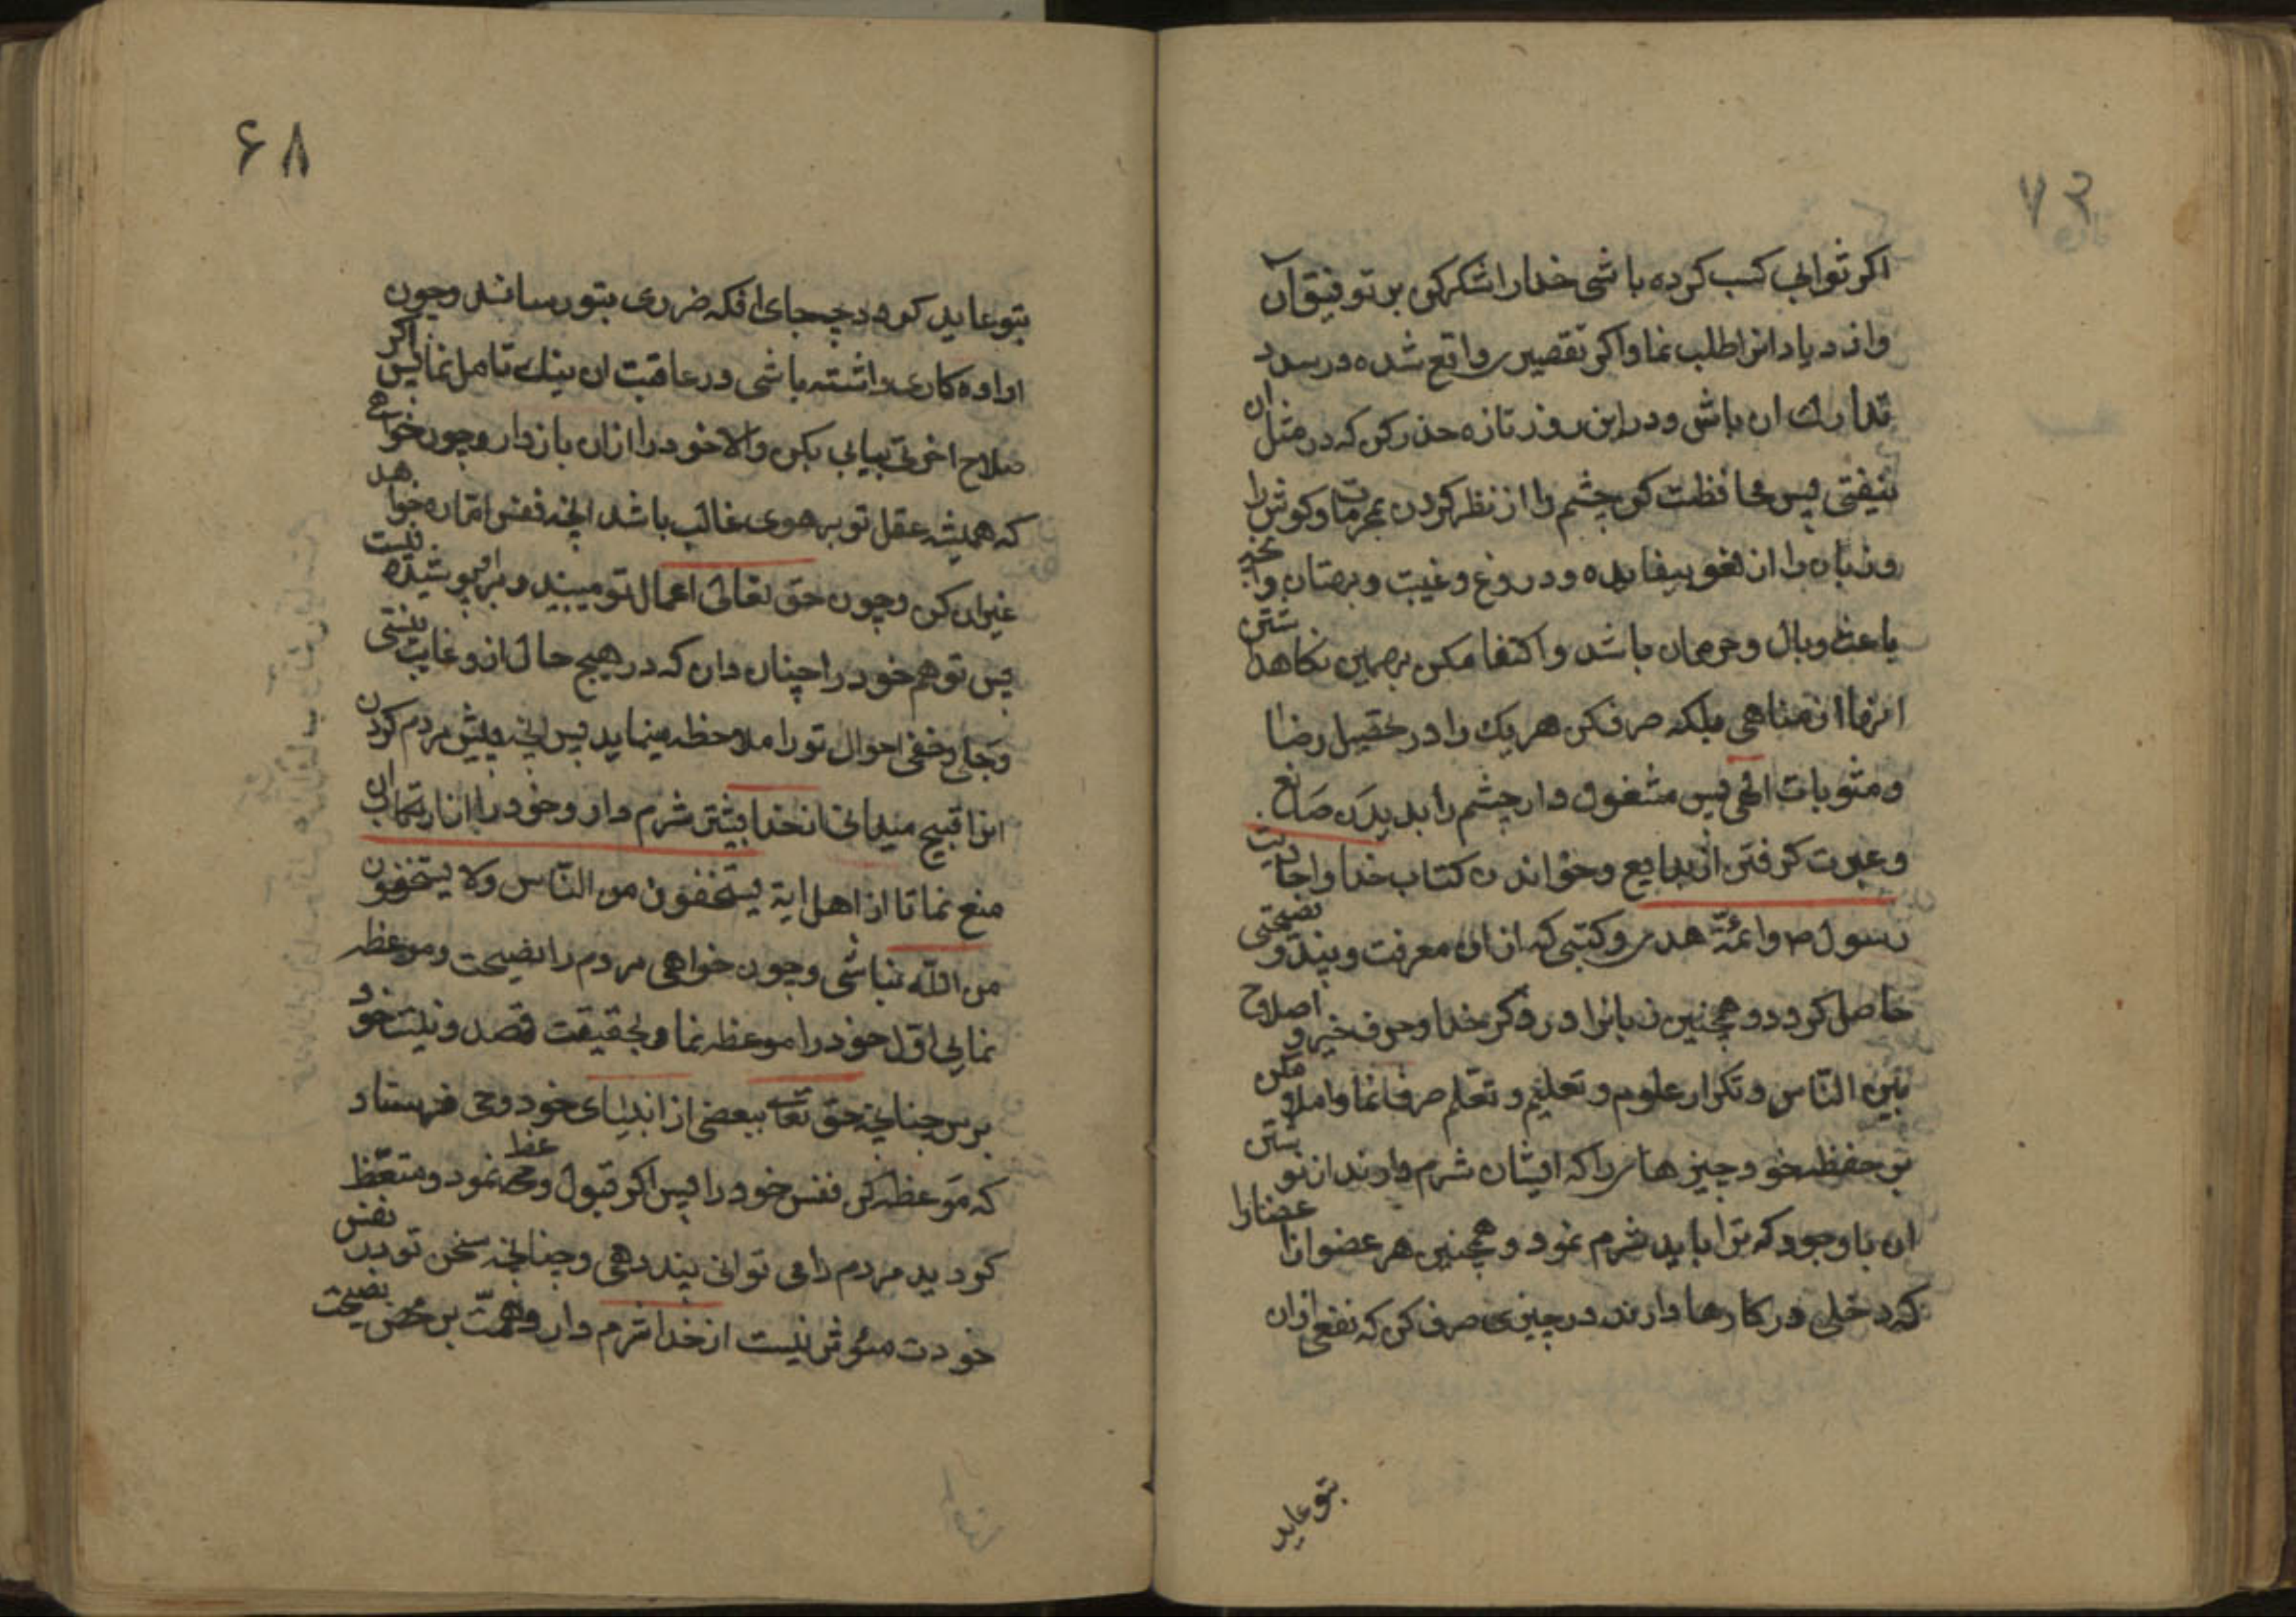 ۷۳
اکر ثوابی کسب کرده باشی خدا را شکر کن بر توفیق آن
و ازدیاد انرا طلب نما و اکر تقصیری واقع شده در صدد
تدارك ان باش و در این روز تازه حذر کن که در مثل ان
نیفتی پس محافظت کن چشم را از نظر کردن بمحرمات و کوش را
و زبان را از لغو بیفایده و دروغ و غیبت و بهتان و انچه
باعث وبال و حرمان باشد و اکتفا مکن بهمین نکاهداشتن
انها از مناهی بلکه صرف کن هر یك را در تحصیل رضا
و مثوبات الهی پس مشغول دار چشم را بدیدن صنایع
و عبرت کرفتن از بدایع و خواندن کتاب خدا و احادیث
رسول ص و ائمّۀ هدی و کتبی که از ان معرفت و پند و نصیحتی
حاصل کردد و همچنین زبانرا در ذکر خدا و حرف خیر و اصلاح
بین النّاس و تکرار علوم و تعلیم و تعلّم صرف نما و املا مکن
بر حفظه خود چیزهائی را که ایشان شرم دارند از نوشتن
ان با وجود که ترا باید شرم نمود و همچنین هر عضو از اعضا را
که دخلی در کارها دارند در چیزی صرف کن که نفعی ازان
بتو عاید
۶۸
بتو عاید کردد چه جای انکه ضرری بتو رساند و چون
ارادۀ کاری داشته باشی در عاقبت ان نیك تامل نما پس اکر
صلاح اخرتی بیابی بکن والا خود را ازان بازدار و چون خواهی
که همیشه عقل تو بر هوی غالب باشد انچه نفس امّاره خواهد
غیر ان کن و چون حق تعالی اعمال تو میبیند و بر او پوشیده نیست
پس تو هم خود را چنان دان که در هیچ حال ازو غایب نیستی
و جلی و خفی احوال تو را ملاحظه مینماید پس انچه پیش مردم کردن
انرا قبیح میدانی از خدا بیشتر شرم دار و خود را از ارتکاب ان
منع نما تا از اهل ایۀ یستخفون من النّاس ولا یستخفون
من الله نباشی و چون خواهی مردم را نصیحت و موعظه
نمایی اوّل خود را موعظه نما و بحقیقت قصد و نیّت خود
برس چنانچه حقّ تعا ببعضی از انبیای خود وحی فرستاد
که موعظه کن نفس خود را پس اکر قبول وعظ نمود و متّعظ
کردید مردم را می توانی پند دهی و چنانچه سخن تو در نفس
خودت مؤثر نیست از خدا شرم دار و همّت بر محض نصیحت